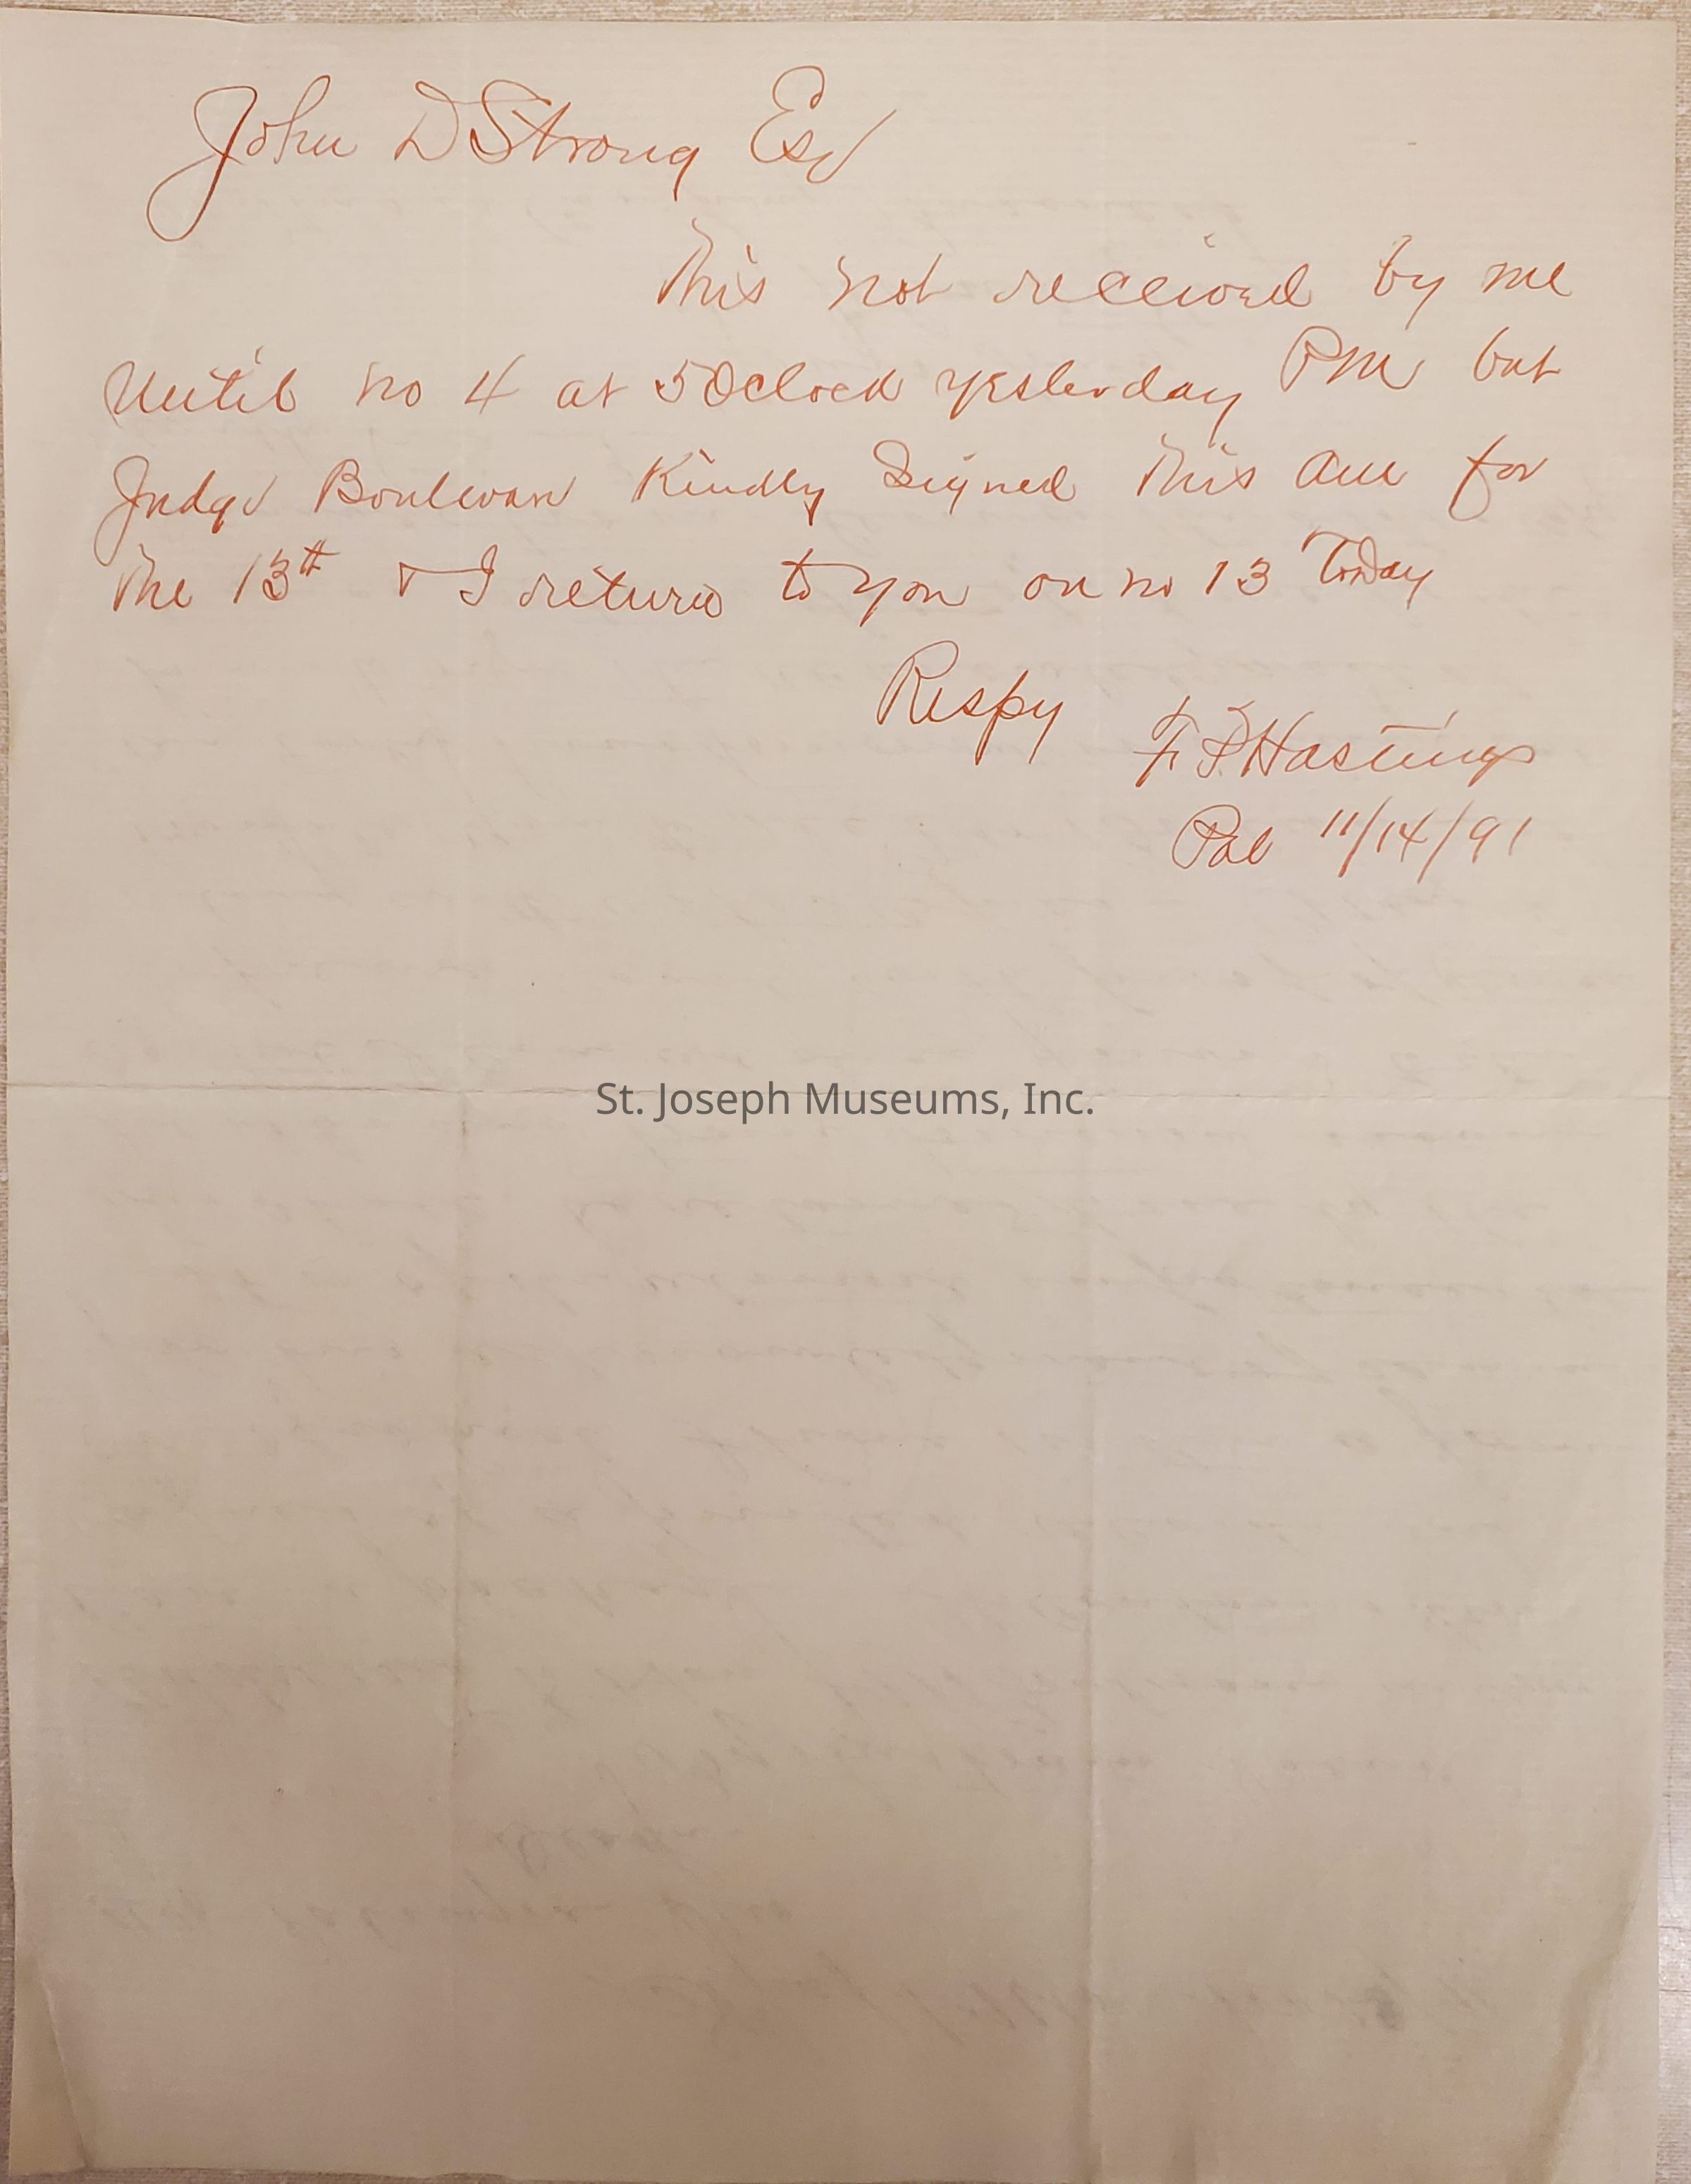 John D Strong Esq
This not received by me
Until no 4 at 5 OClock yesterday PM but
Judge Boulware Kindly Signed This am for
The 13th & I return to you on no 13 Today
Respy
Hastings
Pal 11/14/91
St. Joseph Museums, Inc.